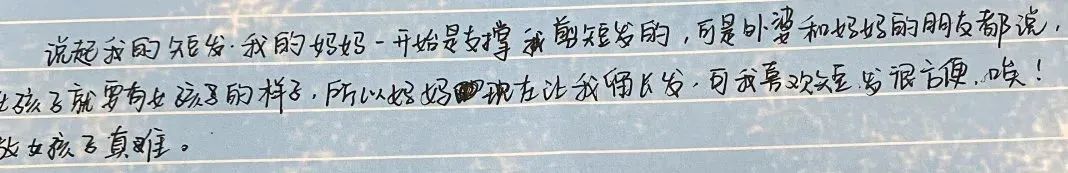 说起我的短发.我的妈妈一开始是支撑我剪短发的,可是外婆和妈妈的朋友都说,
女孩子就要有女孩子的样子.所以妈妈现在让我留长发,可我喜欢短发很方便.唉!
做女孩子真难。